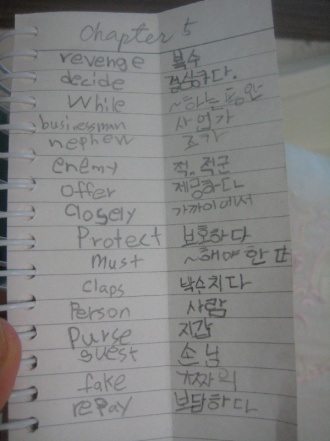 Chapter 5
revenge 복수
decide 결심하다.
While ~하는동안
businessman 사업가
nephew 조카
enemy 적, 적군
offer 제공하다
closely 가까이에서
Protect 보호하다
must ~해야 한다
claps 박수치다
Person 사람
Purse 지갑
guest 손님
fake 가짜의
repay 보답하다